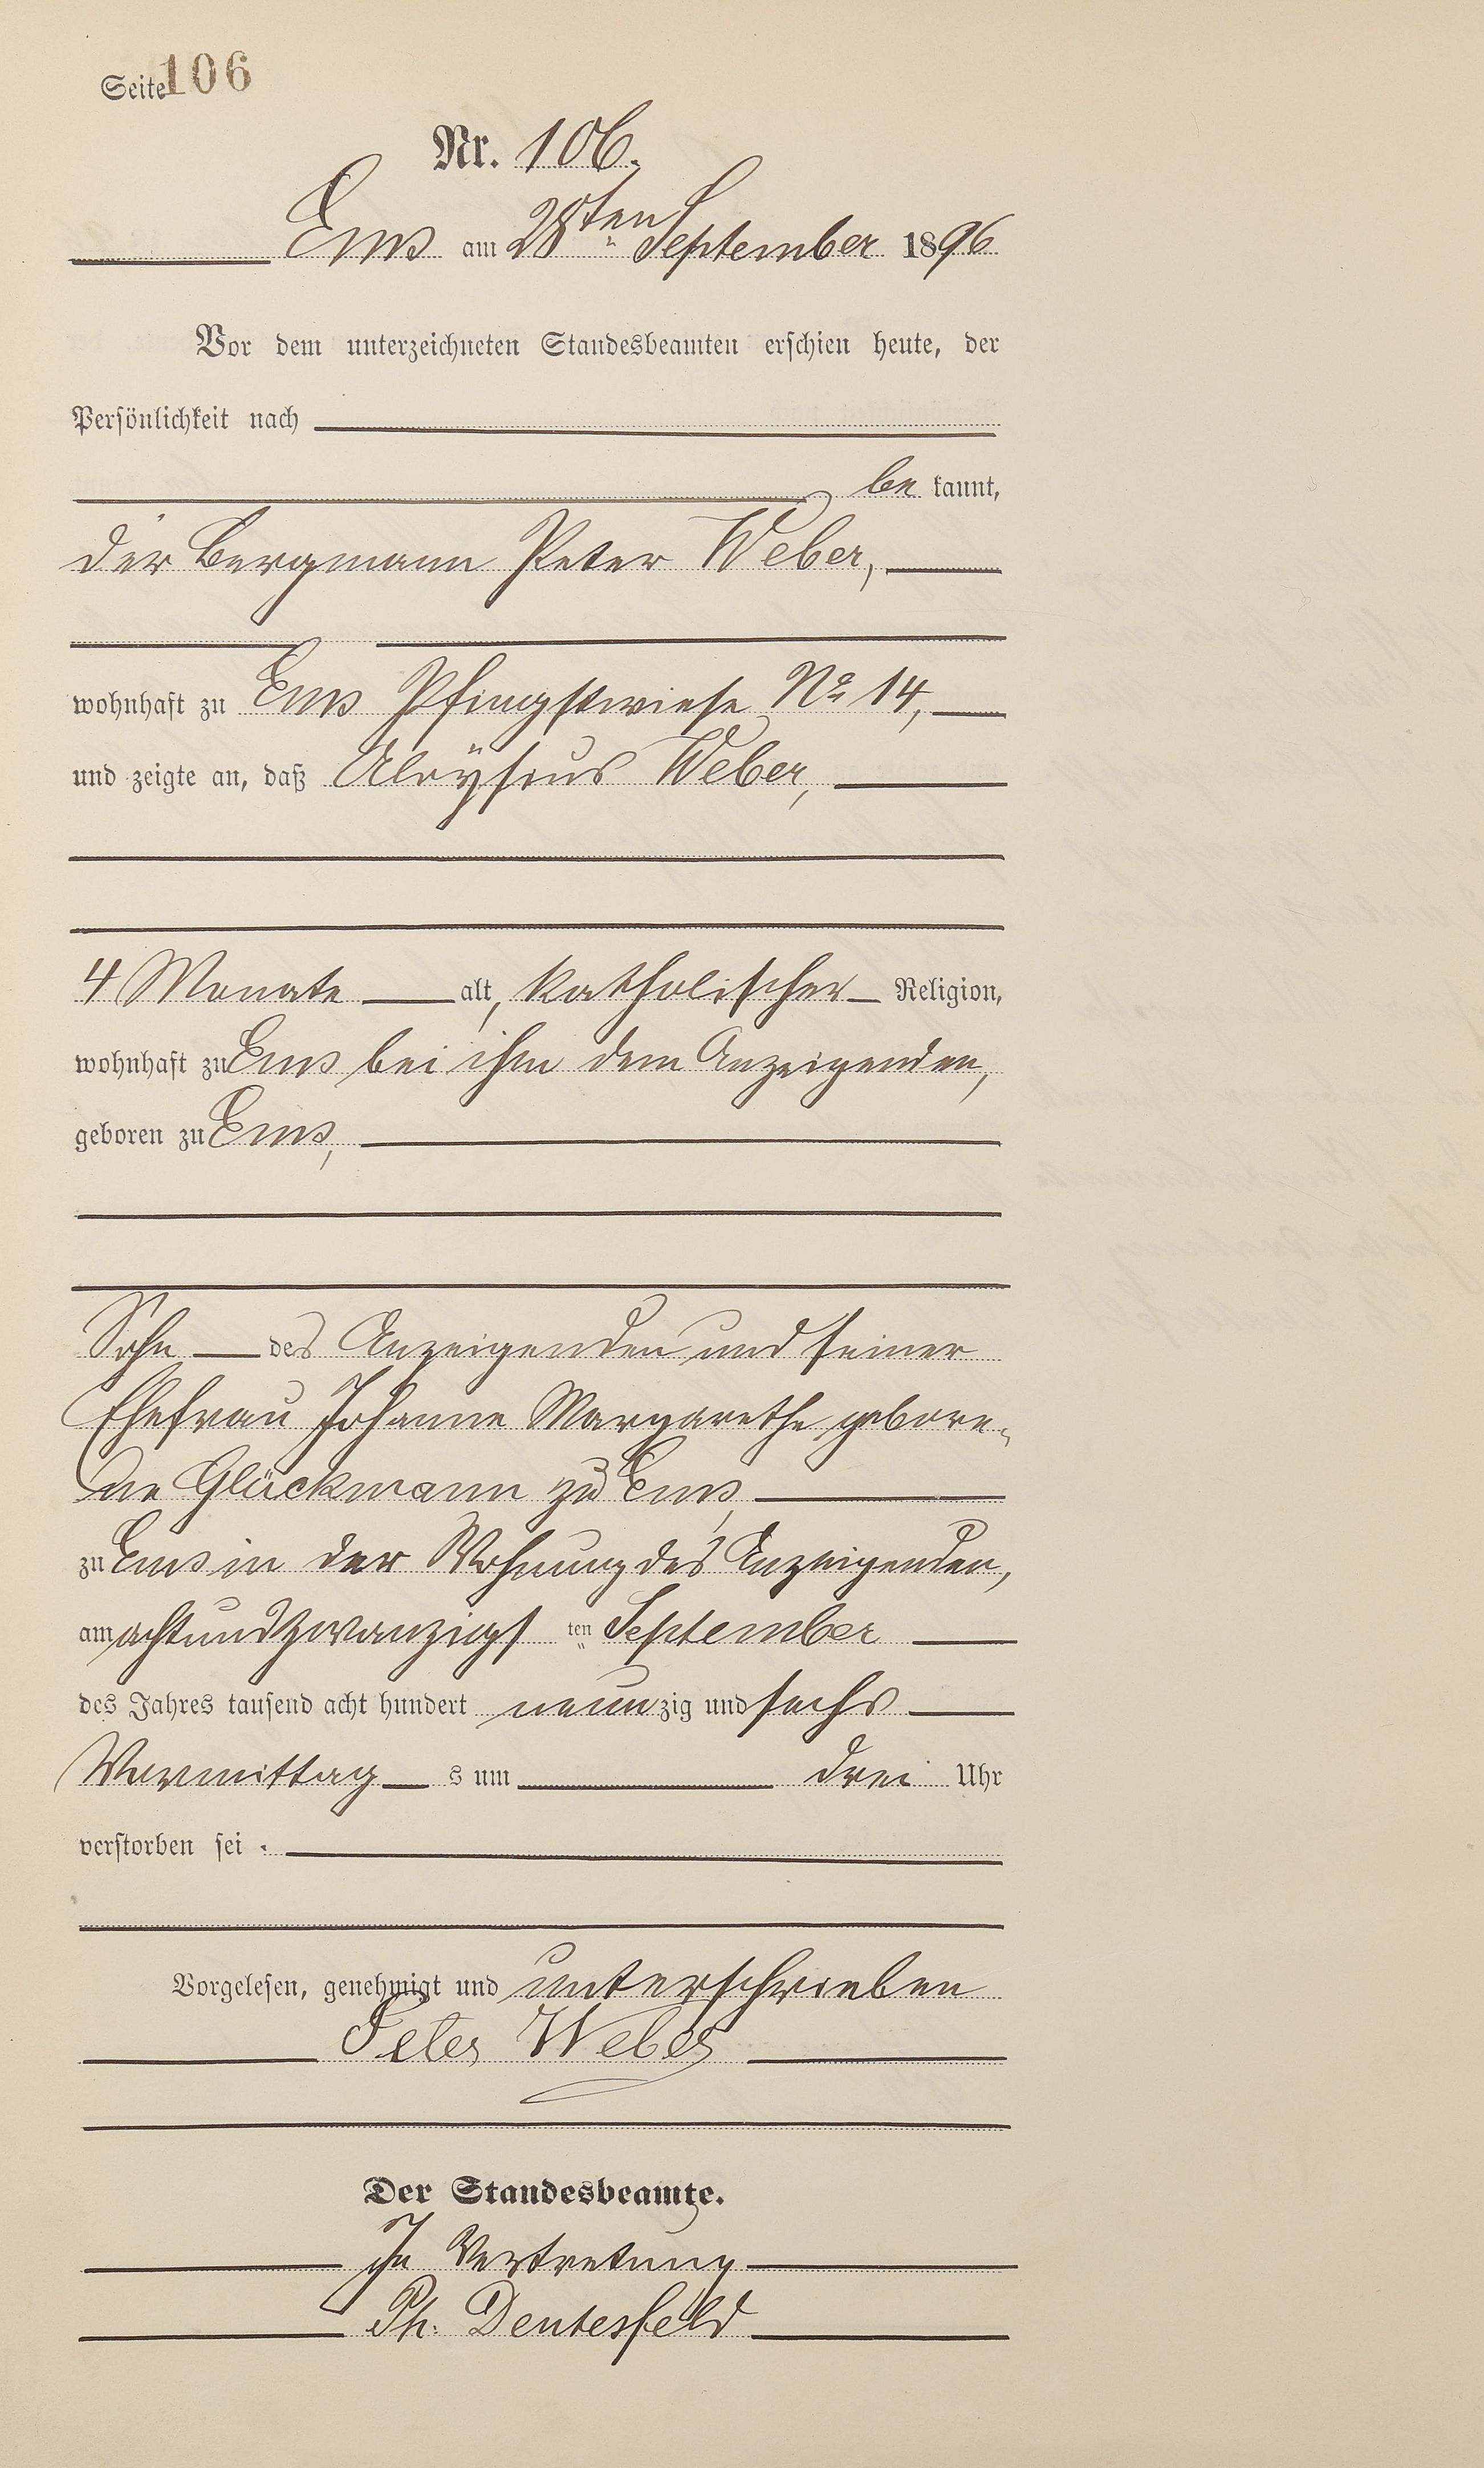 Seite 106
Nr. 106.
Ems am 28ten September 1896
Vor dem unterzeichneten Standesbeamten erschien heute, der
Persönlichkeit nach
be kannt,
der Bergmann Peter Weber,
wohnhaft zu Ems Pfingstwiese No 14,
und zeigte an, daß Aloÿsius Weber,
4 Monate alt, katholischer Religion,
wohnhaft zu Ems bei ihm dem Anzeigenden,
geboren zu Ems,
Sohn des Anzeigenden und seiner
Ehefrau Johanne Margarethe gebore-
ne Glückmann zu Ems,
zu Ems in der Wohnung des Anzeigenden,
am achtundzwanzigs ten September
des Jahres tausend acht hundert neun zig und sechs
Vormittag s um drei Uhr
verstorben sei.
Vorgelesen, genehmigt und unterschrieben
Peter Weber
Der Standesbeamte.
In Vertretung
Ph.